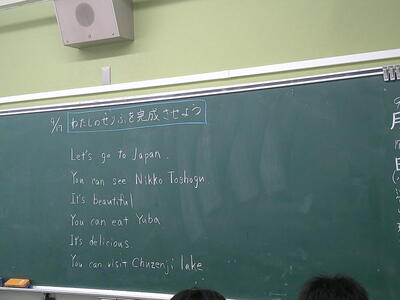 9/17 わたしのせりふを完成させよう
Let's go to Japan.
You can see Nikko Toshogu
It's beautiful
You can eat Yuba
It's delicious
You can visit Chuzenji lake